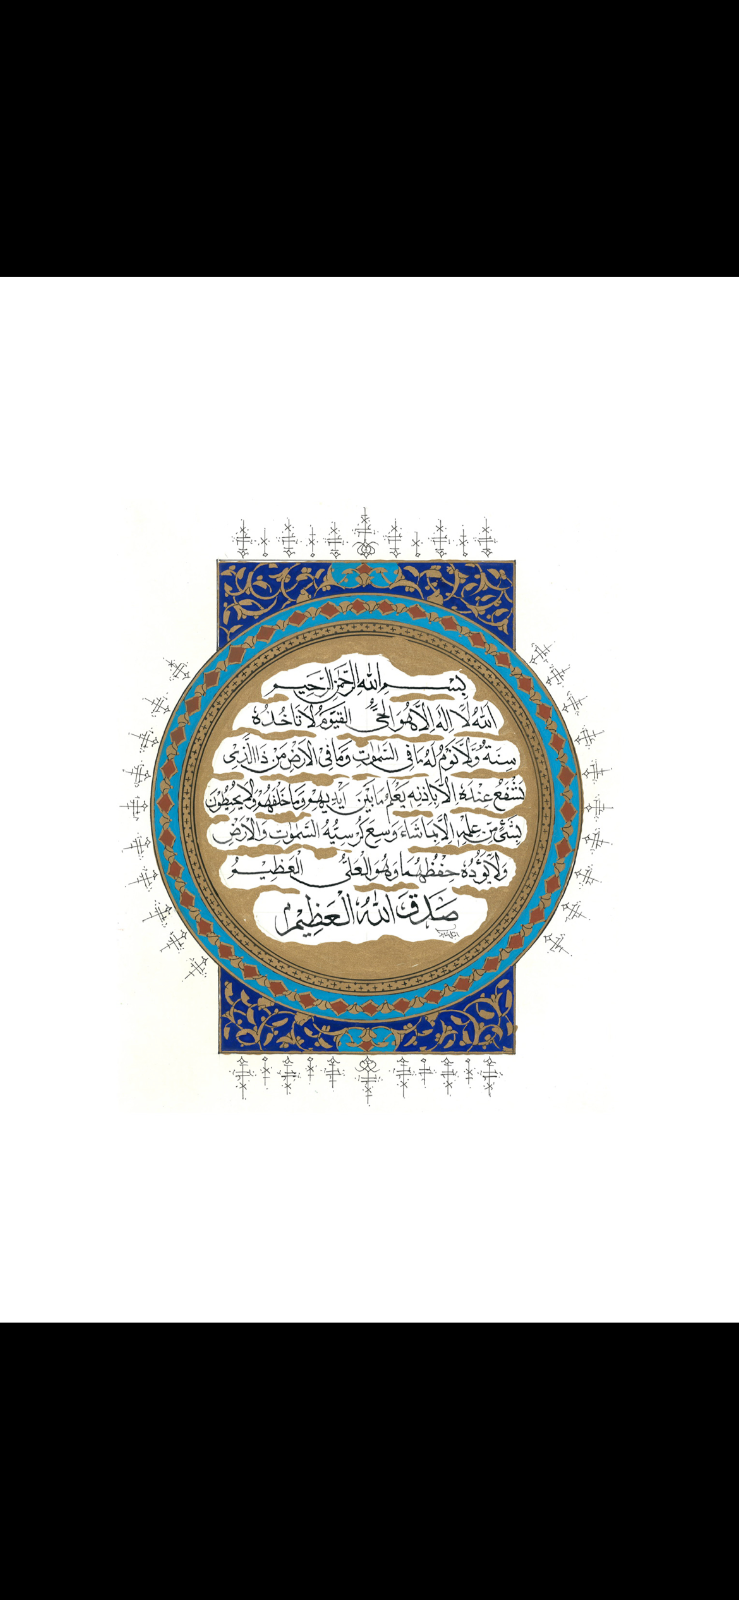 بِسْمِ اللهِ الرَّحْمٰنِ الرَّحِيمِ
اَللهُ لَا اِلٰهَ اِلَّا هُوَ الْحَيُّ الْقَيُّومُ لَا تَأْخُذُهُ
سِنَةٌ وَلَا نَوْمٌ لَهُ مَا فِي السَّمٰوٰتِ وَمَا فِي الْاَرْضِ مَنْ ذَا الَّذِي
يَشْفَعُ عِنْدَهُ اِلَّا بِاِذْنِهِ يَعْلَمُ مَا بَيْنَ اَيْدِيهِمْ وَمَا خَلْفَهُمْ وَلَا يُحِيطُونَ
بِشَيْءٍ مِنْ عِلْمِهِ اِلَّا بِمَا شَاءَ وَسِعَ كُرْسِيُّهُ السَّمٰوٰتِ وَالْاَرْضَ
وَلَا يَؤُدُهُ حِفْظُهُمَا وَهُوَ الْعَلِيُّ الْعَظِيمُ
صَدَقَ اللهُ الْعَظِيمُ